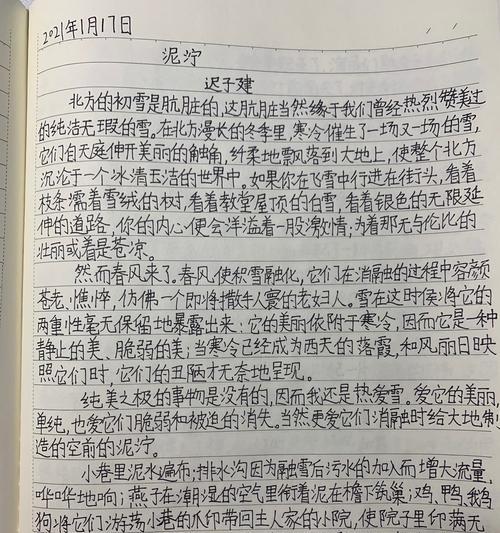 2021年1月17日
泥泞
迟子建
北方的初雪是肮脏的,这肮脏当然缘于我们曾经热烈赞美过
的纯洁无瑕的雪。在北方漫长的冬季里,寒冷催生了一场又一场的雪,
它们自天庭伸开美丽的触角,纤柔地飘落到大地上,使整个北方
沉沦于一个冰清玉洁的世界中。如果你在飞雪中行进在街头,看着
枝条濡着雪绒的树,看着教堂屋顶的白雪,看着银色的无限延
伸的道路,你的内心便会洋溢着一股激情:为着那无与伦比的
壮丽或着是苍凉。
然而春风来了。春风使积雪融化,它们在消融的过程中容颜
苍老、憔悴,仿佛一个即将撒手人寰的老妇人。雪在这时侯将它的
两重性毫无保留地暴露出来:它的美丽依附于寒冷,因而它是一种
静止的美、脆弱的美;当寒冷已经成为西天的落霞,和风丽日映
照它们时,它们的丑陋才无奈地呈现。
纯美之极的事物是没有的,因而我还是热爱雪。爱它的美丽、
单纯,也爱它们脆弱和被迫的消失。当然更爱它们消融时给大地制
造的空前的泥泞。
小巷里泥水遍布;排水沟因为融雪后污水的加入而增大流量,
哗哗地响;燕子在潮湿的空气里衔着泥在檐下筑巢;鸡、鸭、鹅、
狗将它们游荡小巷的爪印带回主人家的小院,使院子里印满无